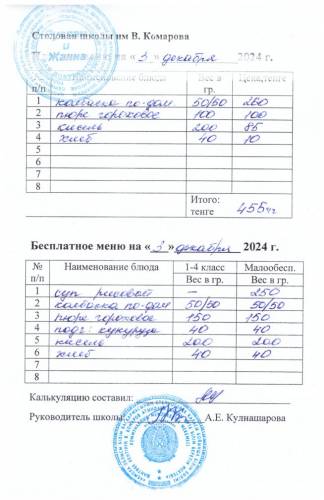 Столовая школы им В. Комарова
Жанна
« 3 » декабря 2024 г.
№ п/п Наименование блюда Вес в гр. Цена, тенге
1 колбаска по-дом 50/50 260
2 пюре гороховое 100 100
3 кисель 200 85
4 хлеб 40 10
5
6
7
8
Итого: тенге 455тг
Бесплатное меню на « 3 » декабря 2024 г.
№ п/п Наименование блюда 1-4 класс Малообесп.
Вес в гр. Вес в гр.
1 суп рисовый — 250
2 колбаска по-дом 50/50 50/50
3 пюре гороховое 150 150
4 подг: кукуруза 40 40
5 кисель 200 200
6 хлеб 40 40
7
8
Калькуляцию составил:
Руководитель школы: А.Е. Кулнашарова